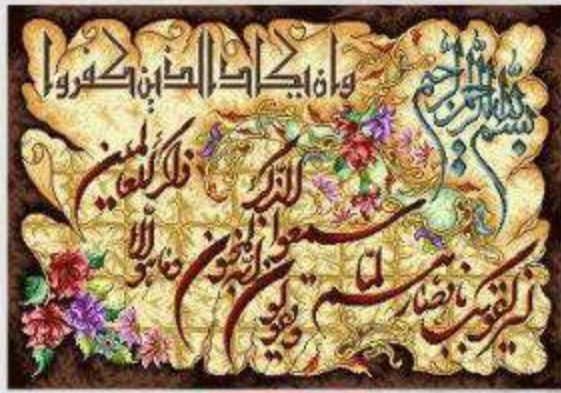 بسم الله الرحمن الرحیم
وان یکاد الذین کفروا
لیزلقونک بابصارهم لما
سمعوا الذکر
ویقولون انه لمجنون
وما هو الا
ذکر للعالمین